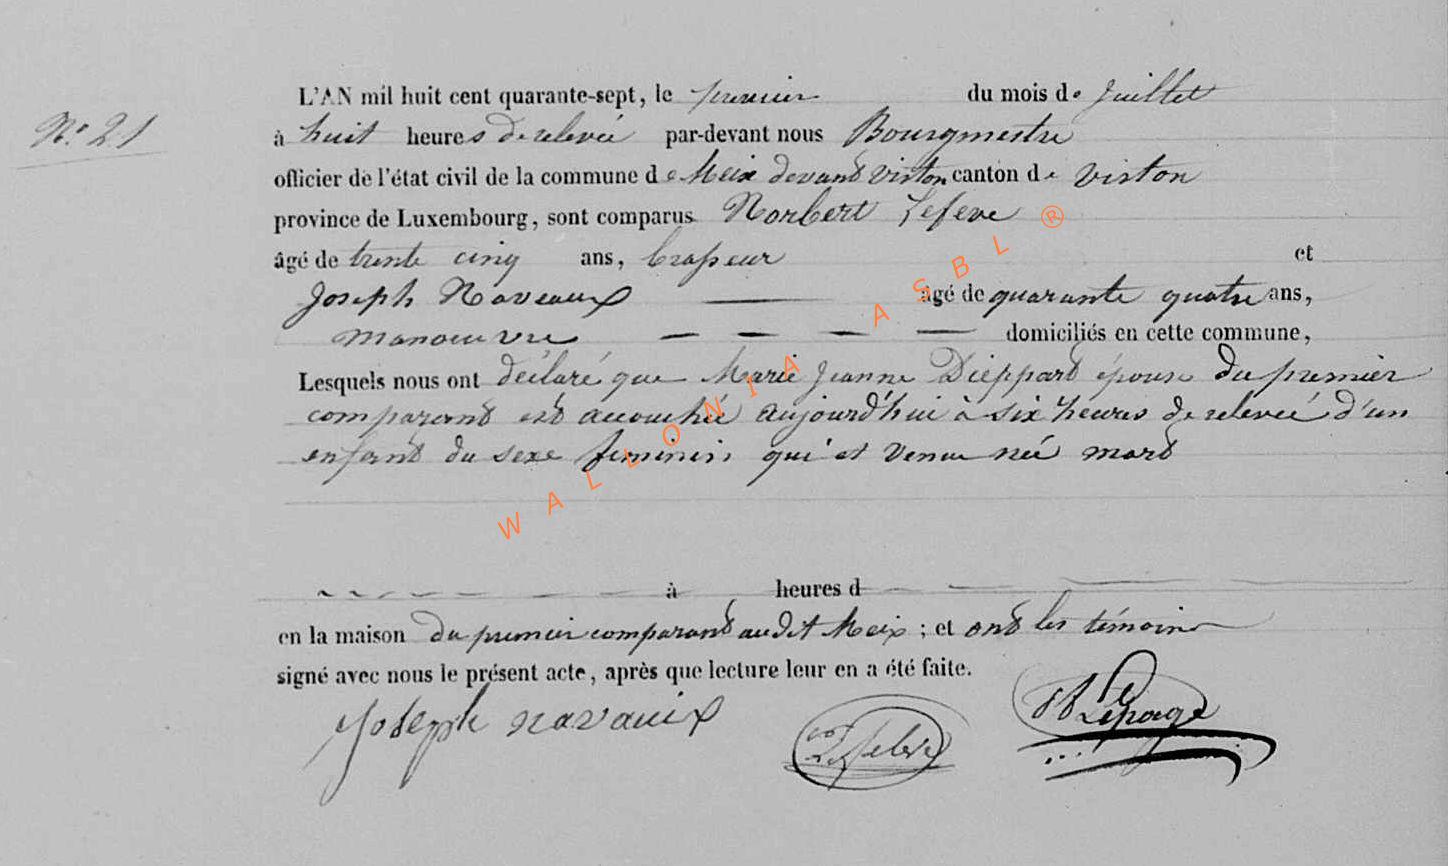 N.° 21
L'AN mil huit cent quarante-sept, le premier du mois de Juillet
à huit heures de relevée par-devant nous Bourgmestre
officier de l'état civil de la commune de Meix devant Virton canton de Virton
province de Luxembourg, sont comparus Norbert Lefevre
âgé de trente cinq ans, brasseur et
Joseph Navaux âgé de quarante quatre ans,
manoeuvre domiciliés en cette commune,
Lesquels nous ont déclaré que Marie Jeanne Dieppard épouse du premier
comparant est accouchée aujourd'hui à six heures de relevée d'un
enfant du sexe feminin qui est venu née mort
à heures d
en la maison du premier comparant audit Meix ; et ont les témoins
signé avec nous le présent acte, après que lecture leur en a été faite.
Joseph navaux Lefebvre Lepage
WALLONIA ASBL ®